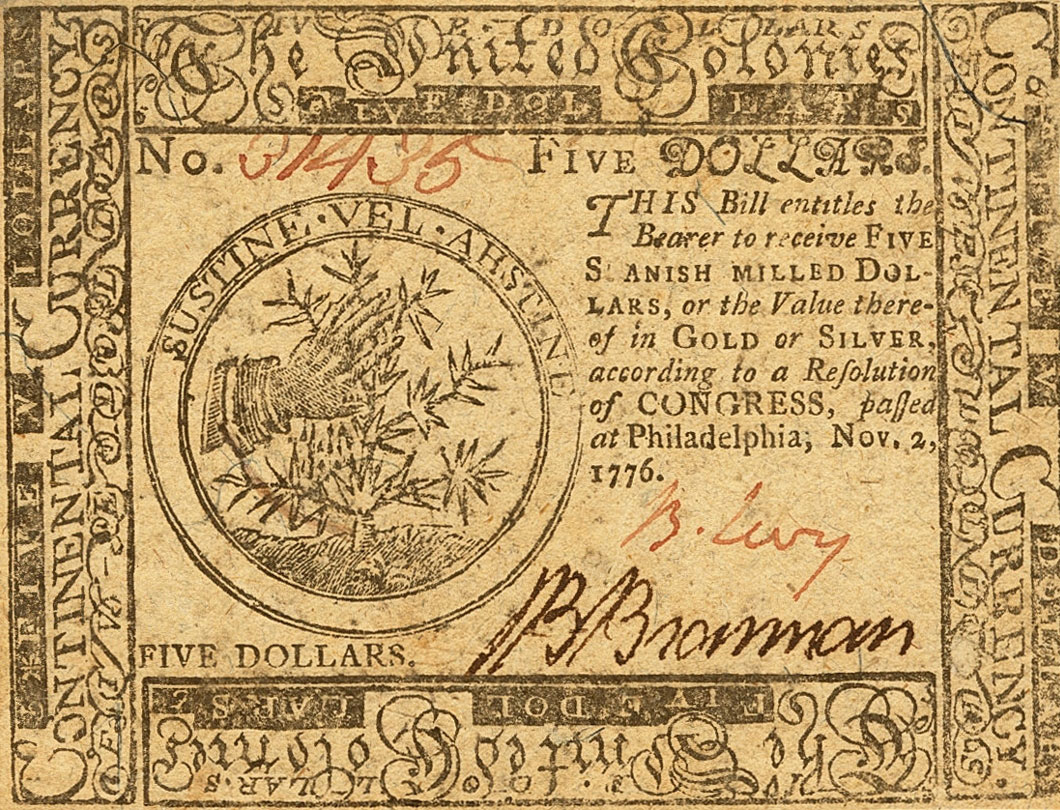 FIVE DOLLARS
The United Colonies
FIVE DOLLARS
No. 31435 FIVE DOLLARS.
SUSTINE·VEL·ABSTINE
THIS Bill entitles the
Bearer to receive FIVE
S ANISH MILLED DOL-
LARS, or the Value there-
of in GOLD or SILVER,
according to a Reſolution
of CONGRESS, paſſed
at Philadelphia, Nov. 2,
1776.
B. Levy
FIVE DOLLARS.
CONTINENTAL CURRENCY
CONTINENTAL CURRENCY.
FIVE DOLLARS
The United Colonies